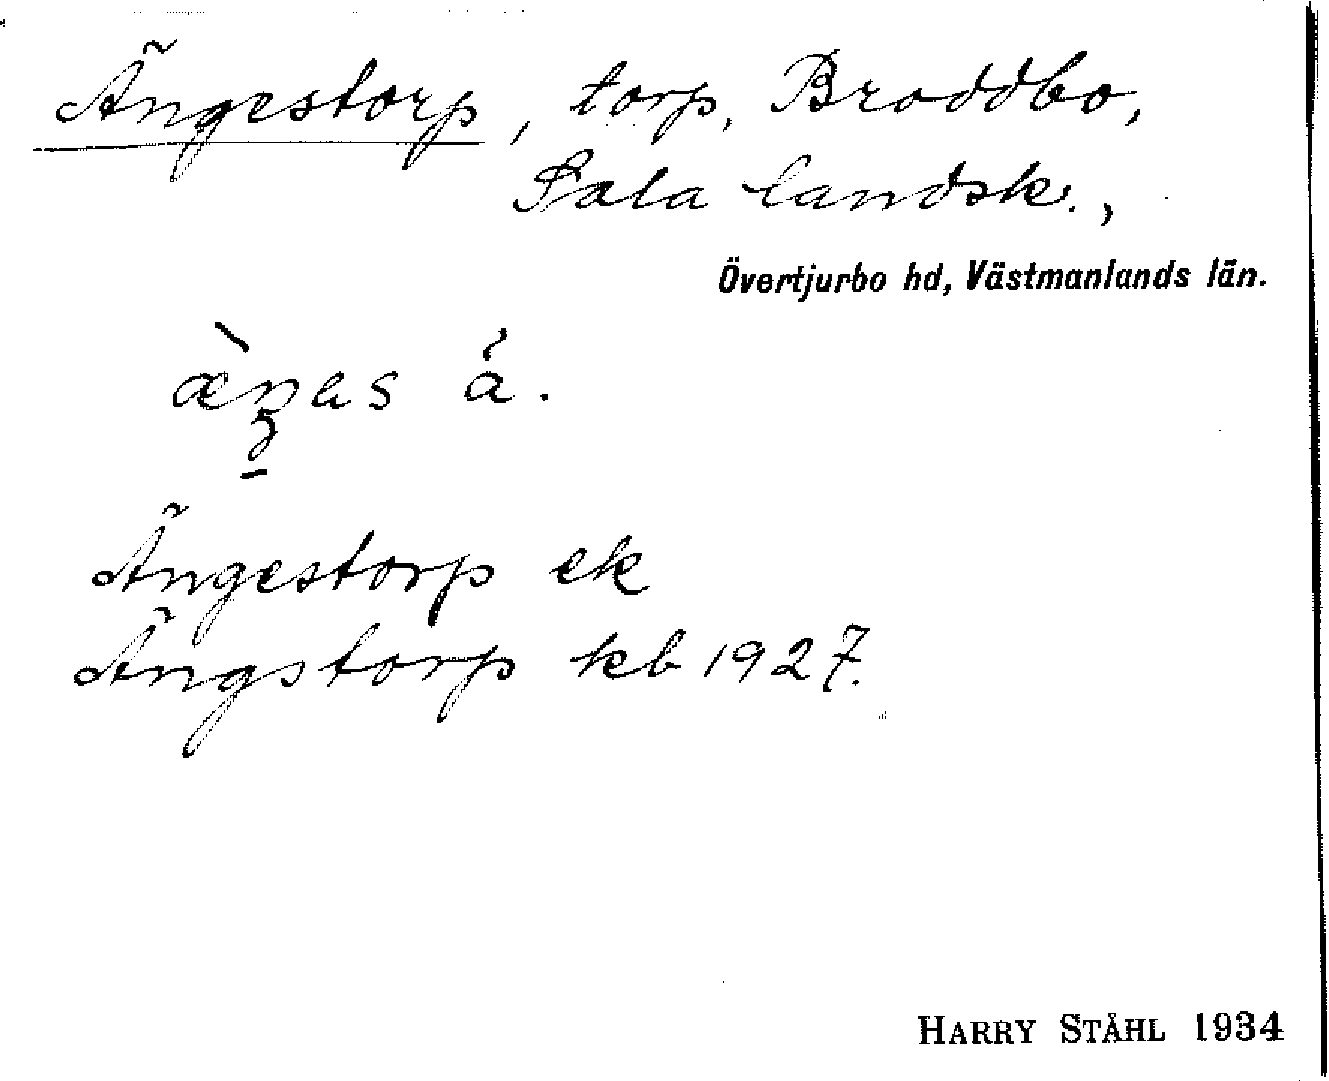 Ängestorp, torp, Broddbo,
Sala landsk.,
Övertjurbo hd, Västmanlands län.
Ängestorp ek
Ängstorp kb 1927.
HARRY STÅHL 1934